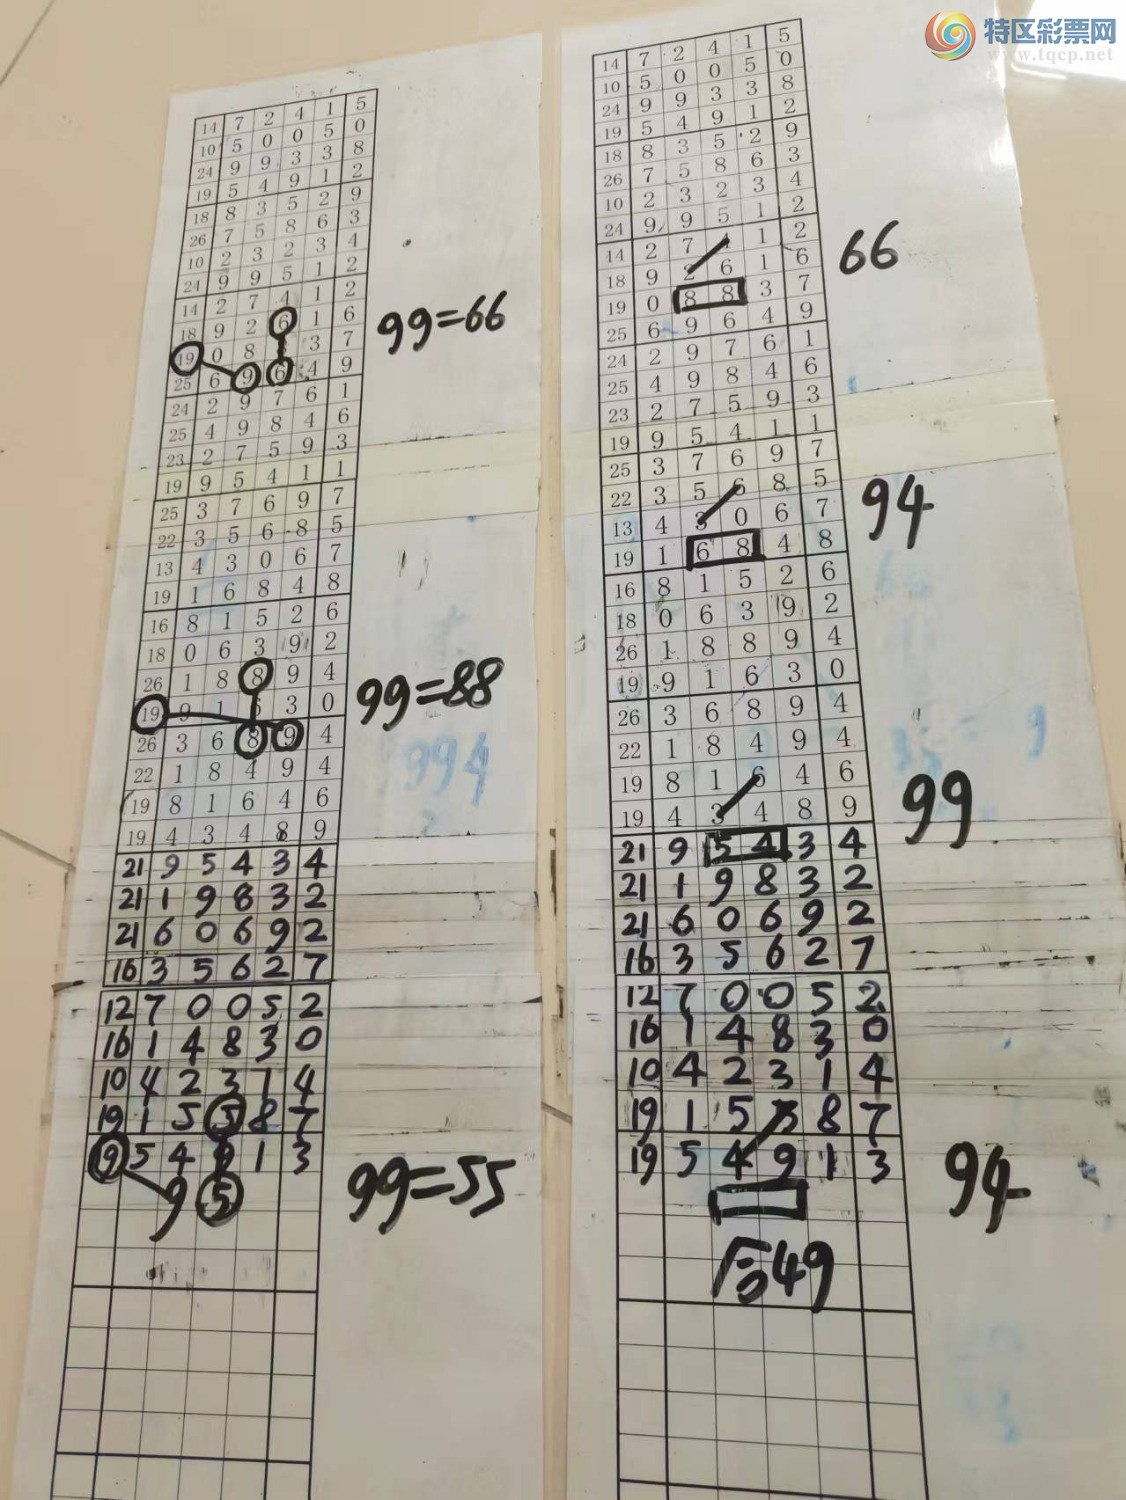 特区彩票网
www.tqcp.net
14 7 2 4 1 5
10 5 0 0 5 0
24 9 9 3 3 8
19 5 4 9 1 2
18 8 3 5 2 9
26 7 5 8 6 3
10 2 3 2 3 4
24 9 9 5 1 2
14 2 7 4 1 2
18 9 2 6 1 6
99=66
19 0 8 3 7
25 6 9 6 4 9
24 2 9 7 6 1
25 4 9 8 4 6
23 2 7 5 9 3
19 9 5 4 1 1
25 3 7 6 9 7
22 3 5 6 8 5
13 4 3 0 6 7
19 1 6 8 4 8
16 8 1 5 2 6
18 0 6 3 9 2
26 1 8 8 9 4
99=88
19 9 1 6 3 0
26 3 6 8 9 4
22 1 8 4 9 4
19 8 1 6 4 6
19 4 3 4 8 9
21 9 5 4 3 4
21 1 9 8 3 2
21 6 0 6 9 2
16 3 5 6 2 7
12 7 0 0 5 2
16 1 4 8 3 0
10 4 2 3 1 4
19 1 5 5 8 7
19 5 4 9 1 3
9 5
99=55
14 7 2 4 1 5
10 5 0 0 5 0
24 9 9 3 3 8
19 5 4 9 1 2
18 8 3 5 2 9
26 7 5 8 6 3
10 2 3 2 3 4
24 9 9 5 1 2
14 2 7 4 1 2
66
18 9 2 6 1 6
19 0 8 8 3 7
25 6 9 6 4 9
24 2 9 7 6 1
25 4 9 8 4 6
23 2 7 5 9 3
19 9 5 4 1 1
25 3 7 6 9 7
22 3 5 6 8 5
94
13 4 3 0 6 7
19 1 6 8 4 8
16 8 1 5 2 6
18 0 6 3 9 2
26 1 8 8 9 4
19 9 1 6 3 0
26 3 6 8 9 4
22 1 8 4 9 4
19 8 1 6 4 6
99
19 4 3 4 8 9
21 9 5 4 3 4
21 1 9 8 3 2
21 6 0 6 9 2
16 3 5 6 2 7
12 7 0 0 5 2
16 1 4 8 3 0
10 4 2 3 1 4
19 1 5 5 8 7
19 5 4 9 1 3
94
49